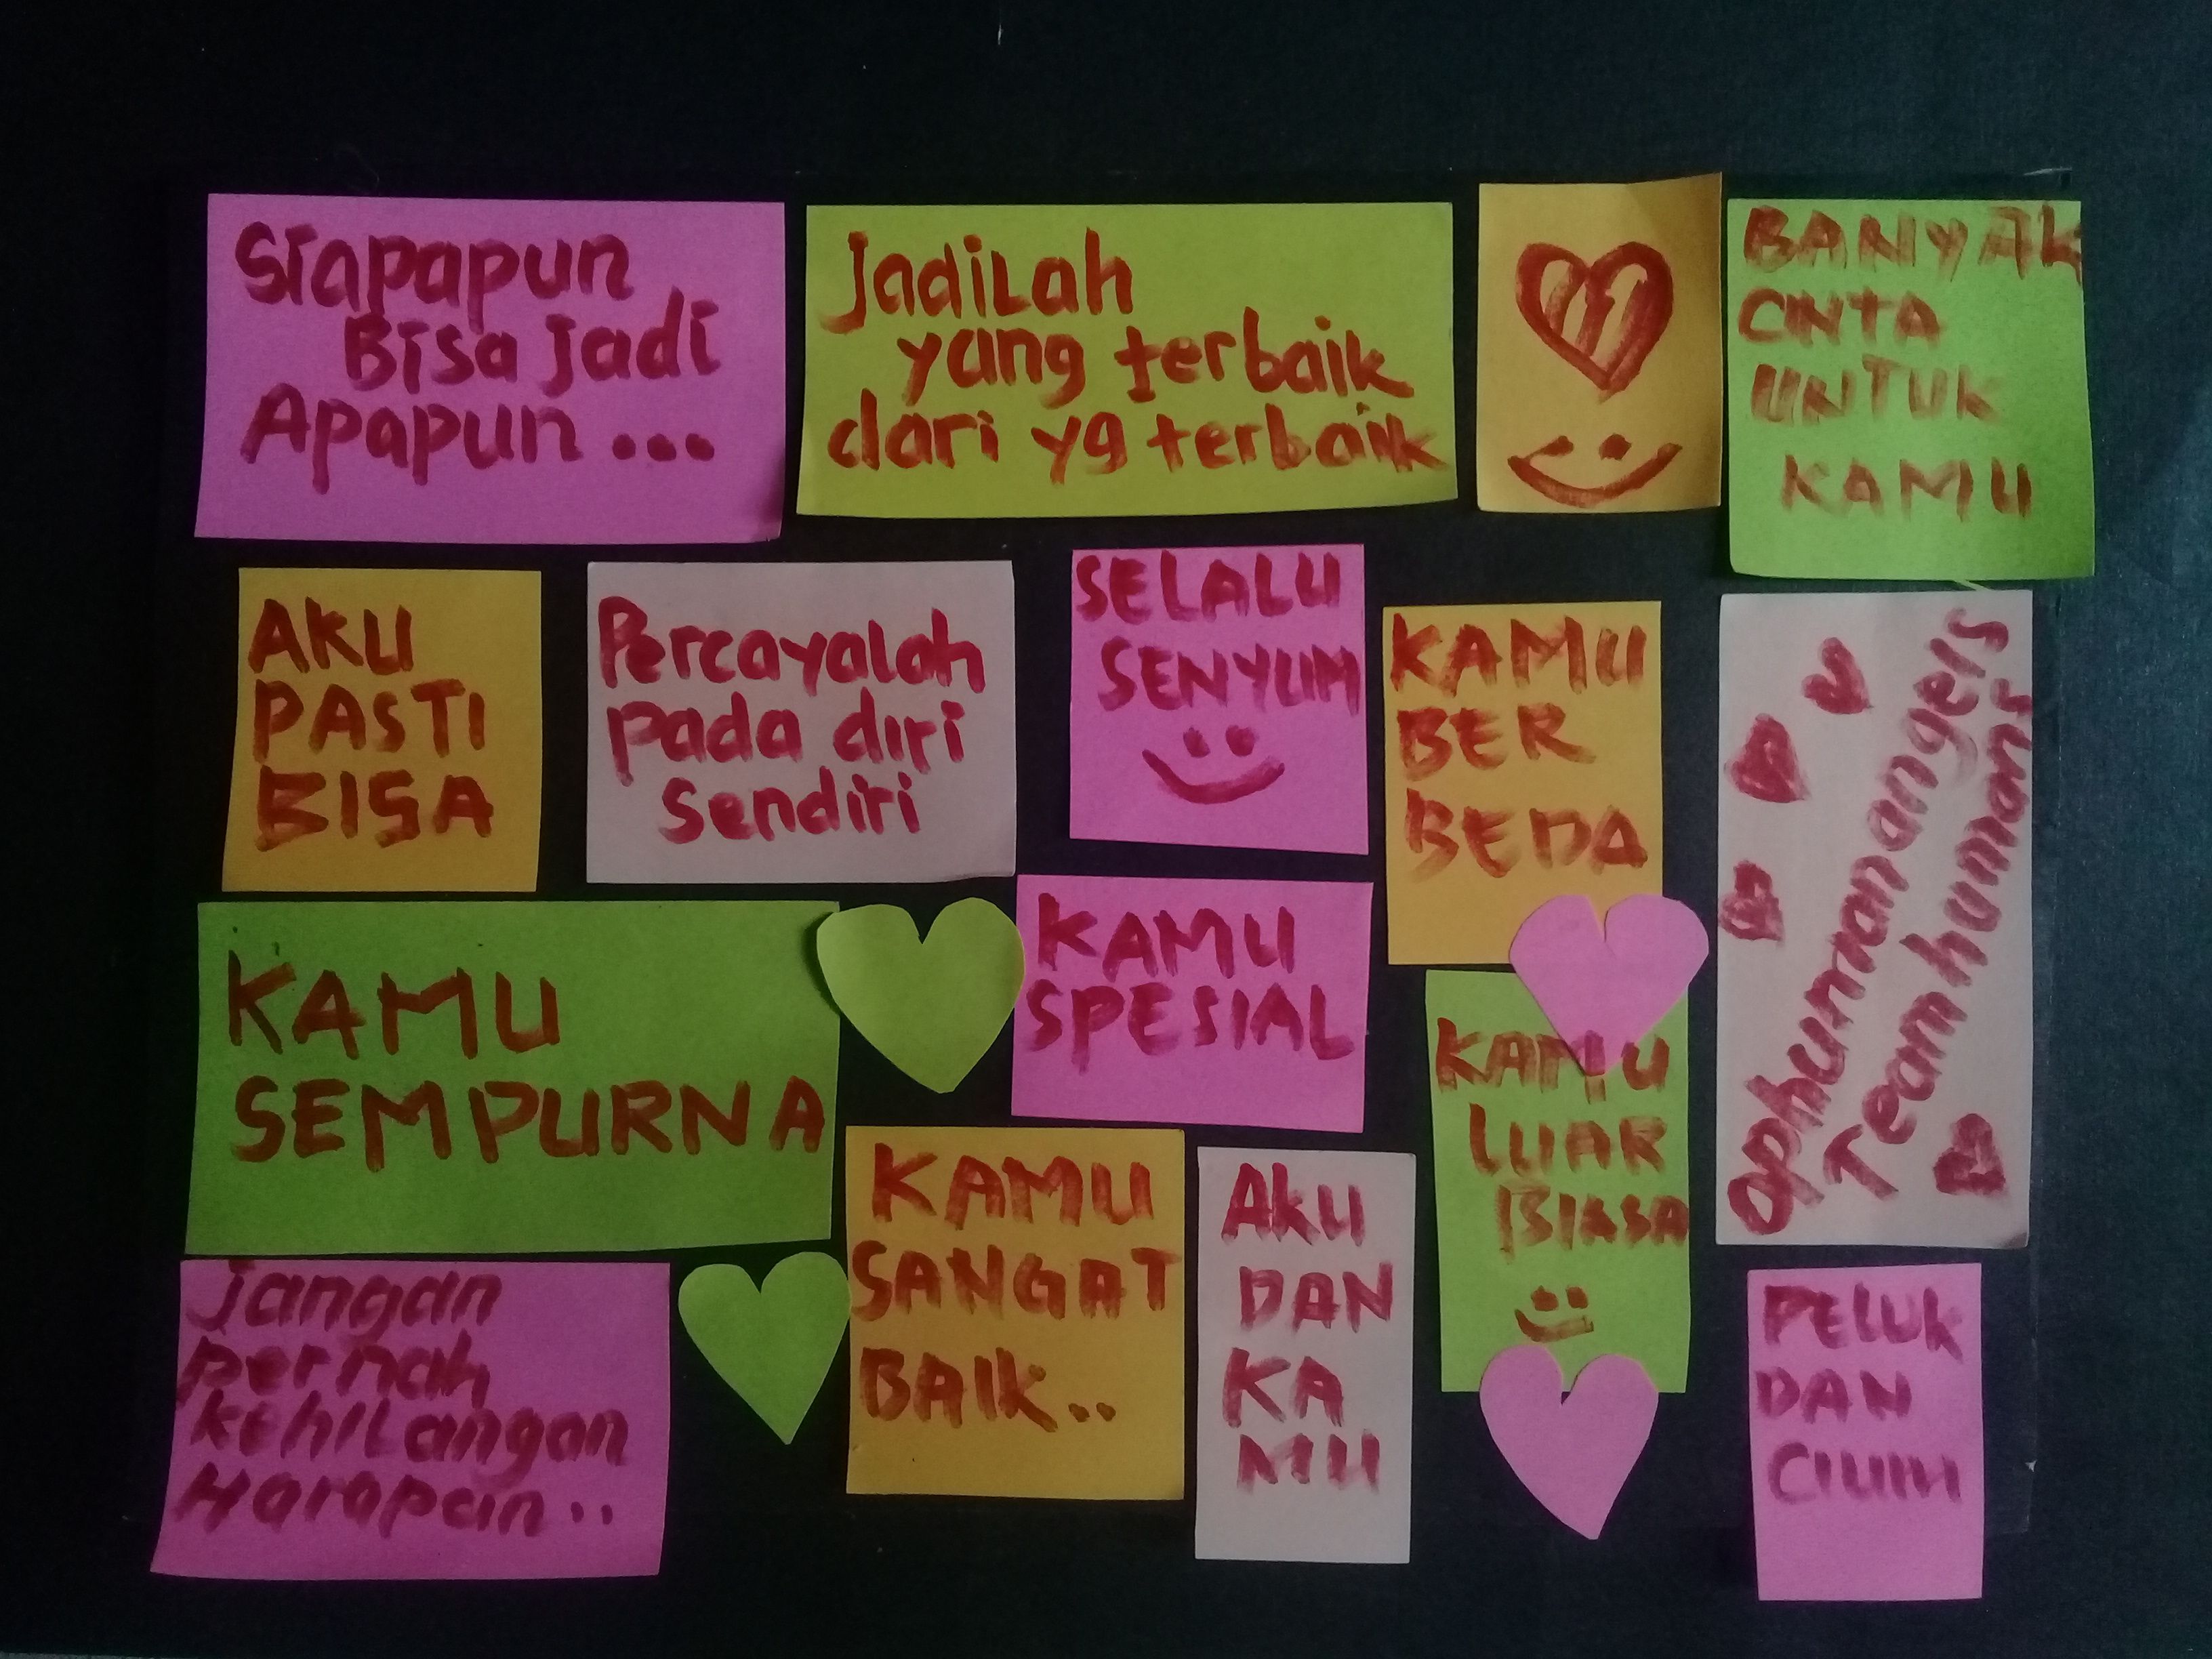 Siapapun
Bisa jadi
Apapun...
JadiLah
yang terbaik
dari yg terbaik
BANYAK
CINTA
UNTUK
KAMU
AKU
PASTI
BISA
Percayalah
pada diri
sendiri
SELALU
SENYUM
KAMU
BER
BEDA
Ophumanangels
Teamhumans
KAMU
SEMPURNA
KAMU
SPESIAL
KAMU
LUAR
BIASA
jangan
pernah
kehiLangan
Harapan..
KAMU
SANGAT
BAIK..
AKU
DAN
KA
MU
PELUK
DAN
CIUM